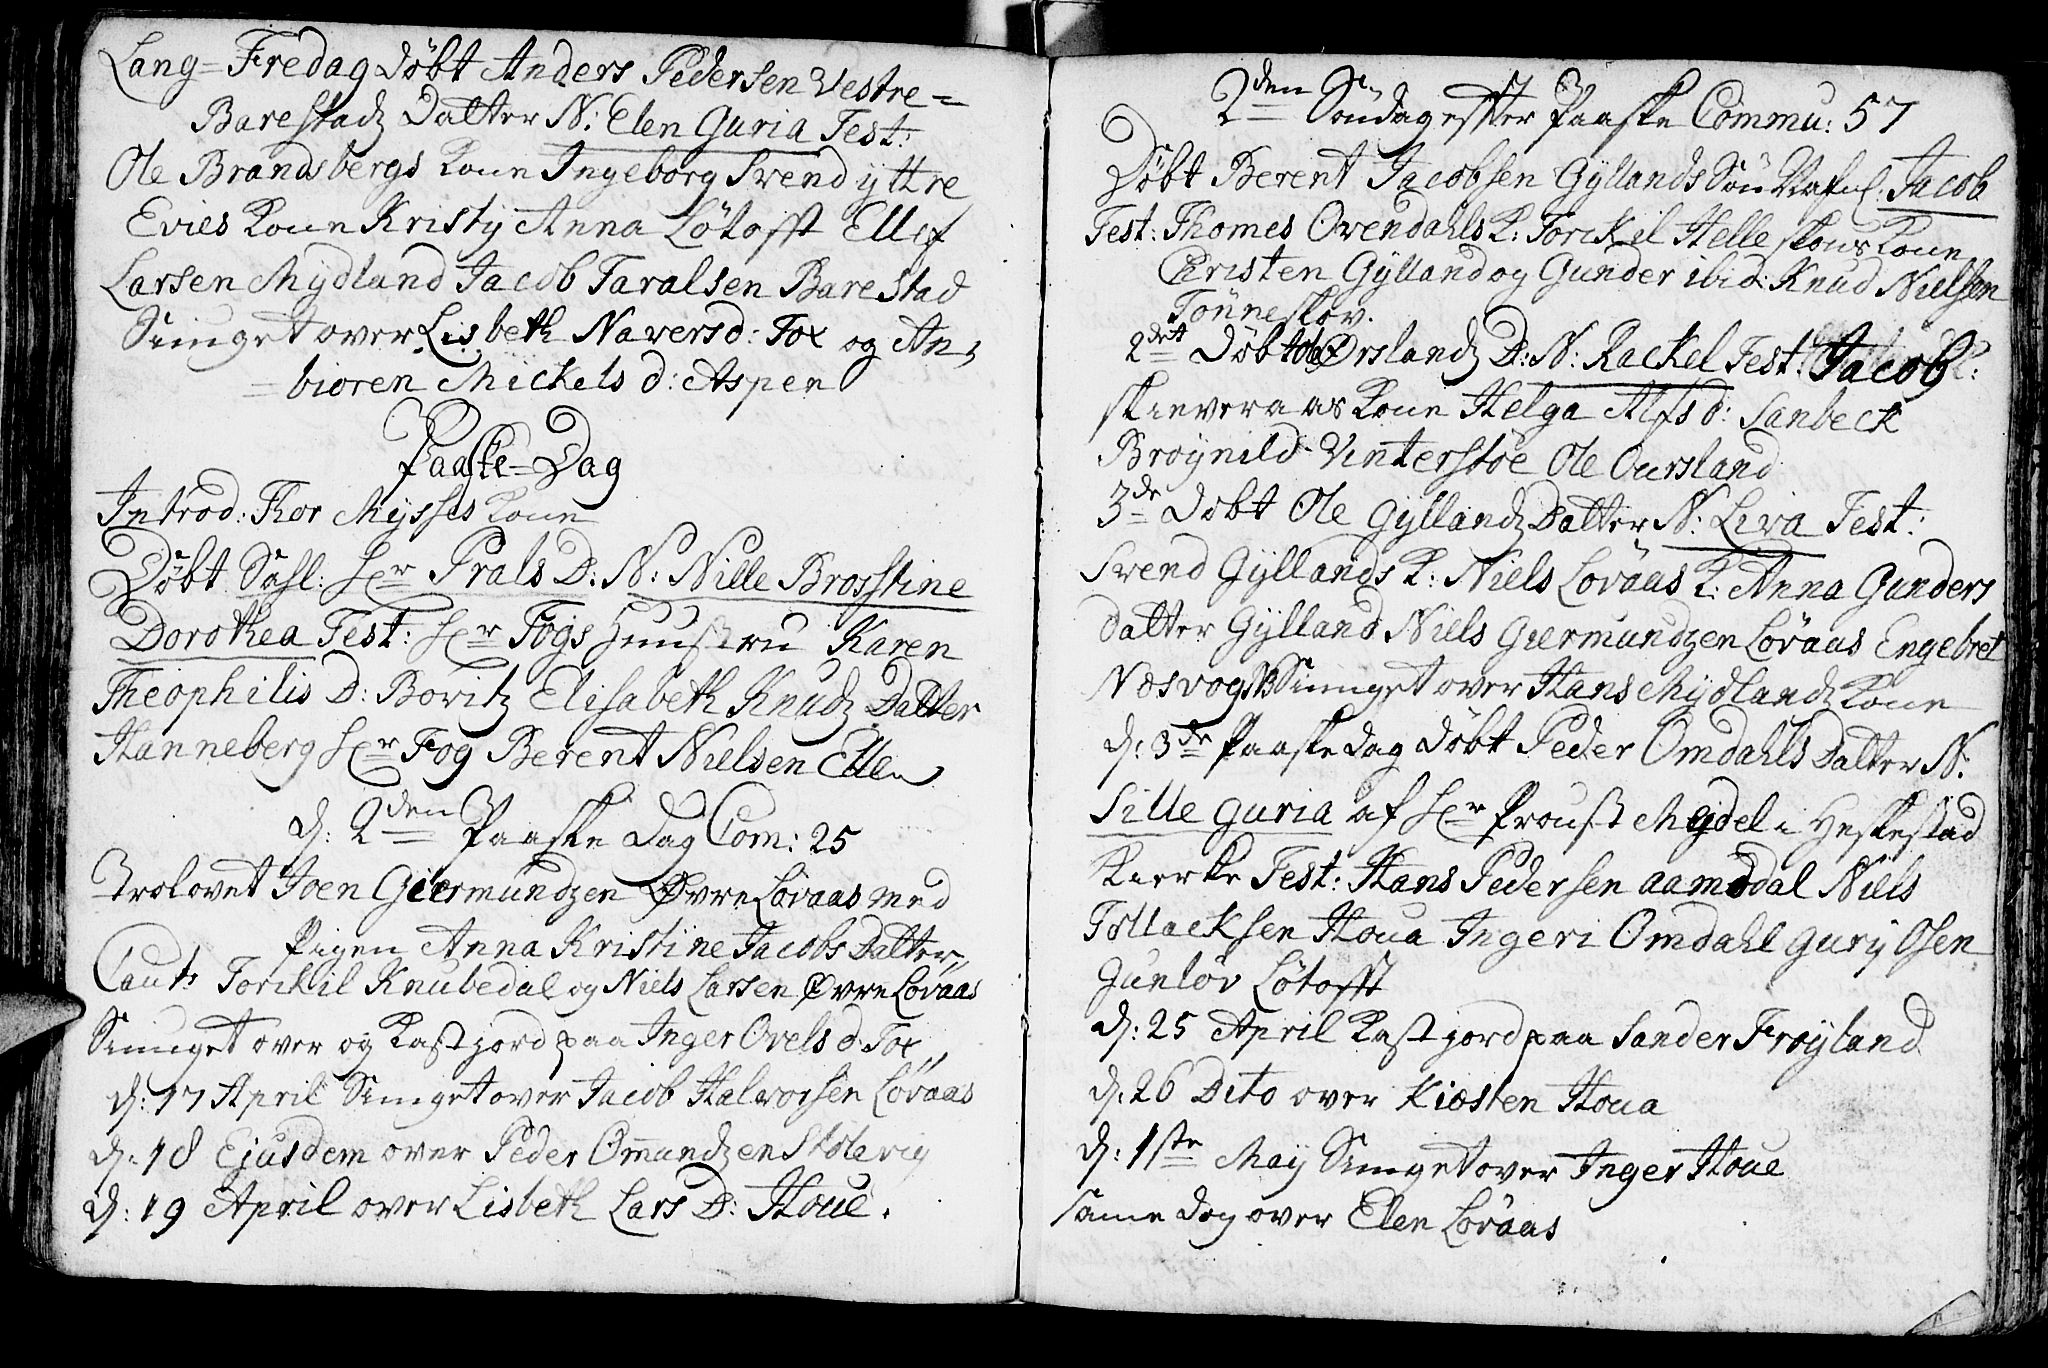 Lang=Fredag Döbt Anders Pedersen Vestre=
Barestadz Datter N: Elen Guria Test:
Ole Brandsbergs Kone Ingeborg Svend yttre
Evies Kone Kristy Anna Lötofft Ellef
Larsen Mydland Jacob Taralsen Barestad
Siunget over Lisbeth Naversd: Tox og An=
=bioren Mickelsd: Aspen
Paaske=Dag
Introd: Thor Mysses Kone
Döbt Sahl: Hr Prals D: N: Nille Brosstine
Dorothea Test: Hr Fogs Huustru Karen
Theophilis D: Boritz Elisabeth Knudz Datter
Hanneberg Hr Fog Berent Nielsen Ellen
d: 2den Paaske Dag Com: 25
Trolovet Joen Giermundzen Øvre Lövaas med
Pigen Anna Kristine Jacobs Datter,,
Caut: Torckil Knubedal og Niels Larsen Øvre Lövaas
Siunget over og Kast jord paa Inger Ovelsd: Tox,,
d: 17 April Siunget over Jacob Halvorsen Lövaas
d: 18 Ejusdem over Peder Omundzen Stölevig
d: 19 April over Lisbeth Lars D: Houe.
2den Söndag efter Paaske Commu: 57
Döbt Berent Jacobsen Gyllands Sön Nafnl: Jacob
Test: Thomes Ovendahls K: Torckil Helleskovs Kone
Christen Gylland og Gunder ibid: Knud Nielsen
Tönneskov.
2det Döbt Ola Ørslandz D: N: Rackel Test: Jacob
Skieveraas Kone Helga Alfsd: Sanbeck
Bröynild Vinterstöe Ole Oursland
3de Döbt Ole Gyllandz Datter N: Liva Test:
Svend Gyllands K: Niels Lovaas K: Anna Gunders
datter Gylland Niels Giermundzen Lövaas Engebret
Nesvog Siunget over Hans Mydlandz Kone
d: 3de Paaske dag döbt Peder Omdahls Datter N:
Sille Guria af Hr Proust Mejdel i Heskestad
Kierke Test: Hans Pedersen Aamodal Niels
Tollacksen Houa Ingeri Omdahl Gury Osen
Gunlöv Lötofft
d: 25 April Kast jord paa Sander Fröyland
d: 26 Dito over Kiösten Houa
d: 1ste May Siunget over Inger Houe
same Dag over Elen Lövaas